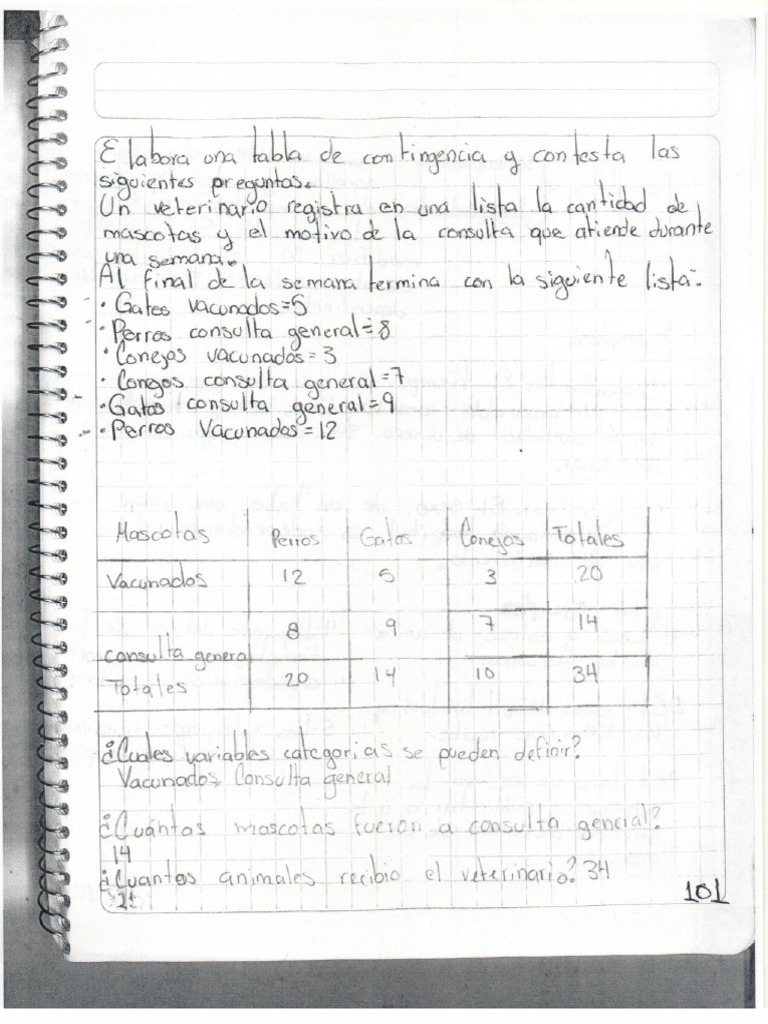 Elabora una tabla de contingencia y contesta las
siguientes preguntas.
Un veterinario registra en una lista la cantidad de
mascotas y el motivo de la consulta que atiende durante
una semana.
Al final de la semana termina con la siguiente lista:
· Gatos vacunados=5
· Perros consulta general=8
· Conejos vacunados=3
· Conejos consulta general=7
· Gatos consulta general=9
· Perros Vacunados=12
Mascotas Perros Gatos Conejos Totales
Vacunados 12 5 3 20
consulta genera 8 9 7 14
Totales 20 14 10 34
¿Cuales variables categorias se pueden definir?
Vacunados, Consulta general
¿Cuántas mascotas fueron a consulta general?
14
¿Cuantos animales recibio el veterinario? 34
101